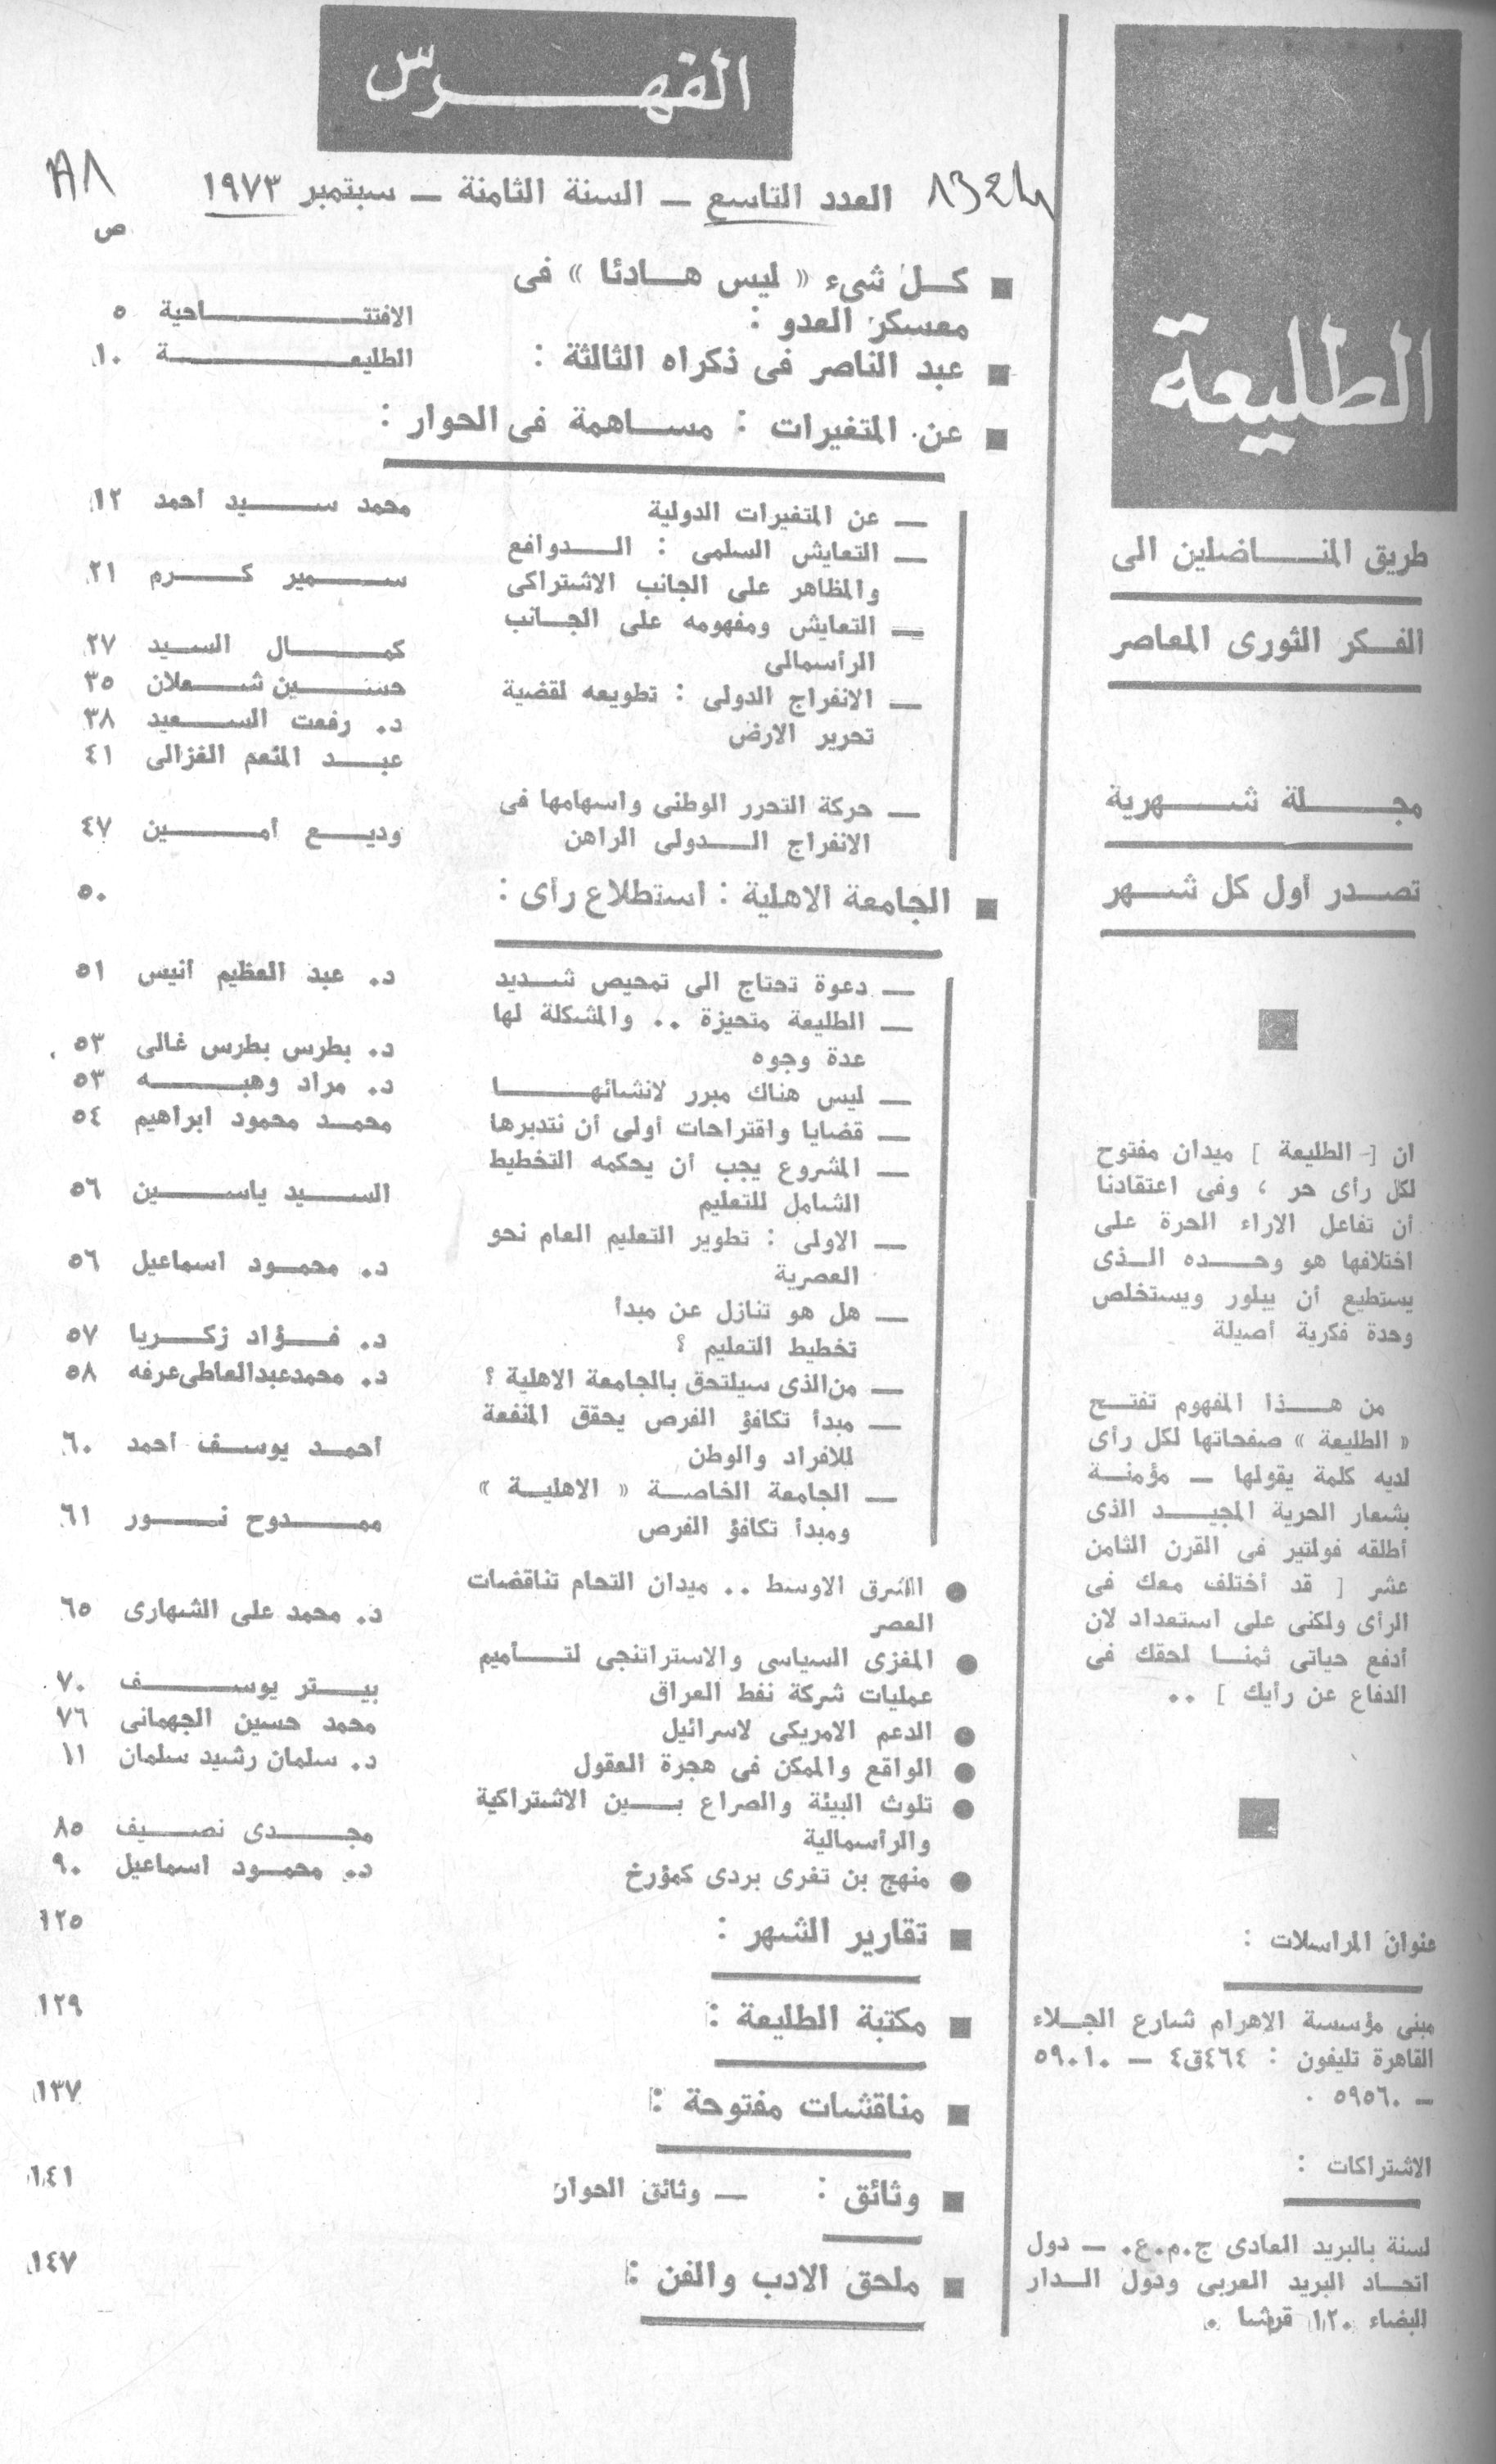 الطليعة
طريق المناضلين الى
الفكر الثورى المعاصر
مجلة شهرية
تصدر أول كل شهر
ان [ الطليعة ] ميدان مفتوح
لكل رأى حر ، وفى اعتقادنا
أن تفاعل الاراء الحرة على
اختلافها هو وحده الذى
يستطيع أن يبلور ويستخلص
وحدة فكرية أصيلة
من هذا المفهوم تفتح
« الطليعة » صفحاتها لكل رأى
لديه كلمة يقولها — مؤمنة
بشعار الحرية المجيد الذى
أطلقه فولتير فى القرن الثامن
عشر [ قد أختلف معك فى
الرأى ولكنى على استعداد لان
أدفع حياتى ثمنا لحقك فى
الدفاع عن رأيك ] ..
عنوان المراسلات :
مبنى مؤسسة الاهرام شارع الجلاء
القاهرة تليفون : ٤٦٤ق٤ — ٥٩٠١٠
— ٥٩٥٦٠ .
الاشتراكات :
لسنة بالبريد العادى ج.م.ع. — دول
اتحاد البريد العربى ودول الدار
البضاء ١٢٠ قرشا .
الفهرس
العدد التاسع — السنة الثامنة — سبتمبر ١٩٧٣
ص
كل شىء « ليس هادئا » فى
معسكر العدو : الافتتاحية ٥
عبد الناصر فى ذكراه الثالثة : الطليعة ١٠
عن المتغيرات : مساهمة فى الحوار :
— عن المتغيرات الدولية محمد سيد أحمد ١٢
— التعايش السلمى : الدوافع
والمظاهر على الجانب الاشتراكى سمير كرم ٢١
— التعايش ومفهومه على الجانب
الرأسمالى كمال السيد ٢٧
— الانفراج الدولى : تطويعه لقضية حسين شعلان ٣٥
تحرير الارض د. رفعت السعيد ٣٨
عبد المنعم الغزالى ٤١
— حركة التحرر الوطنى واسهامها فى
الانفراج الدولى الراهن وديع أمين ٤٧
الجامعة الاهلية : استطلاع رأى : ٥٠
— دعوة تحتاج الى تمحيص شديد د. عبد العظيم أنيس ٥١
— الطليعة متحيزة .. والمشكلة لها
عدة وجوه د. بطرس بطرس غالى ٥٣
— ليس هناك مبرر لانشائها د. مراد وهبه ٥٣
— قضايا واقتراحات أولى أن نتدبرها محمد محمود ابراهيم ٥٤
— المشروع يجب أن يحكمه التخطيط
الشامل للتعليم السيد ياسين ٥٦
— الاولى : تطوير التعليم العام نحو
العصرية د. محمود اسماعيل ٥٦
— هل هو تنازل عن مبدأ
تخطيط التعليم ؟ د. فؤاد زكريا ٥٧
— من الذى سيلتحق بالجامعة الاهلية ؟ د. محمد عبد العاطى عرفه ٥٨
— مبدأ تكافؤ الفرص يحقق المنفعة
للافراد والوطن أحمد يوسف أحمد ٦٠
— الجامعة الخاصة « الاهلية »
ومبدأ تكافؤ الفرص ممدوح نور ٦١
الشرق الاوسط .. ميدان التحام تناقضات
العصر د. محمد على الشهارى ٦٥
المغزى السياسى والاستراتنجى لتأميم
عمليات شركة نفط العراق بيتر يوسف ٧٠
الدعم الامريكى لاسرائيل محمد حسين الجهمانى ٧٦
الواقع والممكن فى هجرة العقول د. سلمان رشيد سلمان ١١
تلوث البيئة والصراع بين الاشتراكية
والرأسمالية مجدى نصيف ٨٥
منهج بن تغرى بردى كمؤرخ د. محمود اسماعيل ٩٠
تقارير الشهر : ١٢٥
مكتبة الطليعة : ١٢٩
مناقشات مفتوحة : ١٣٧
وثائق : — وثائق الحوار ١٤١
ملحق الادب والفن : ١٤٧